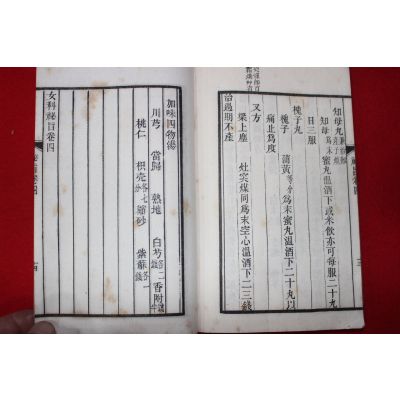 知母丸
知母爲末蜜丸溫酒下或米飲亦可每服二十丸
日三服
槐子丸
槐子 蒲黃等分爲末蜜丸溫酒下二十丸以
痛止爲度
又方
梁上塵 灶突煤同爲末空心溫酒下二三錢
治過期不產
加味四物湯
川芎 當歸 熟地 白芍各二錢 香附
桃仁 枳壳各七分 縮砂 紫蘇各一錢
女科秘旨卷四